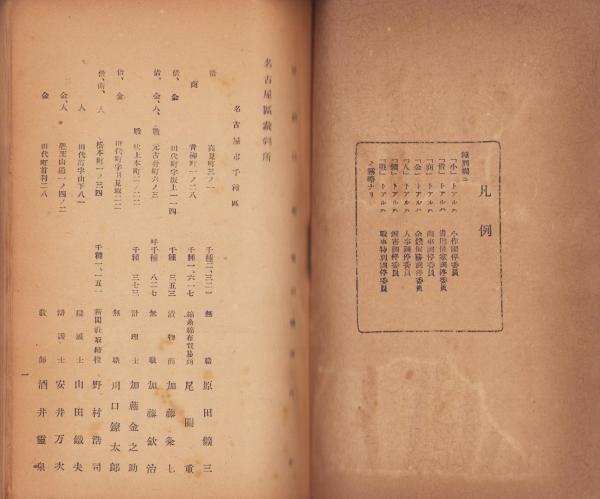 凡例
種別欄ニ
「小」トアルハ 小作調停委員
「借」トアルハ 借地借家調停委員
「商」トアルハ 商事調停委員
「金」トアルハ 金錢債務調停委員
「人」トアルハ 人事調停委員
「鑛」トアルハ 鑛害調停委員
「戰」トアルハ 戰事特別調停委員
ノ略ナリ
名古屋區裁判所
名古屋市千種區
借 高見町三ノ一 無職 原田
商 青柳町一ノ二八 千種一、六一七 尾關重
借、金 田代町字坂上一一四 千種 三五三 漬物商 加藤粂七
借、金、人、戰 元古井町六ノ三 呼千種 八二七 無職 加藤欽治
戰 吹上本町一ノ二二 千種 三七三 計理士 加藤金之助
借、金 無職 川口鐐太郎
借、商、人 橋本町一ノ三四 千種一、一五一 新聞社取締役 野村浩司
人 田代町字山下八一 辯護士 山田鐵夫
金、人 覺王山通一ノ四ノ二 辯護士 安井万次
金 田代町首利二八 敎師 酒井靈泉
1